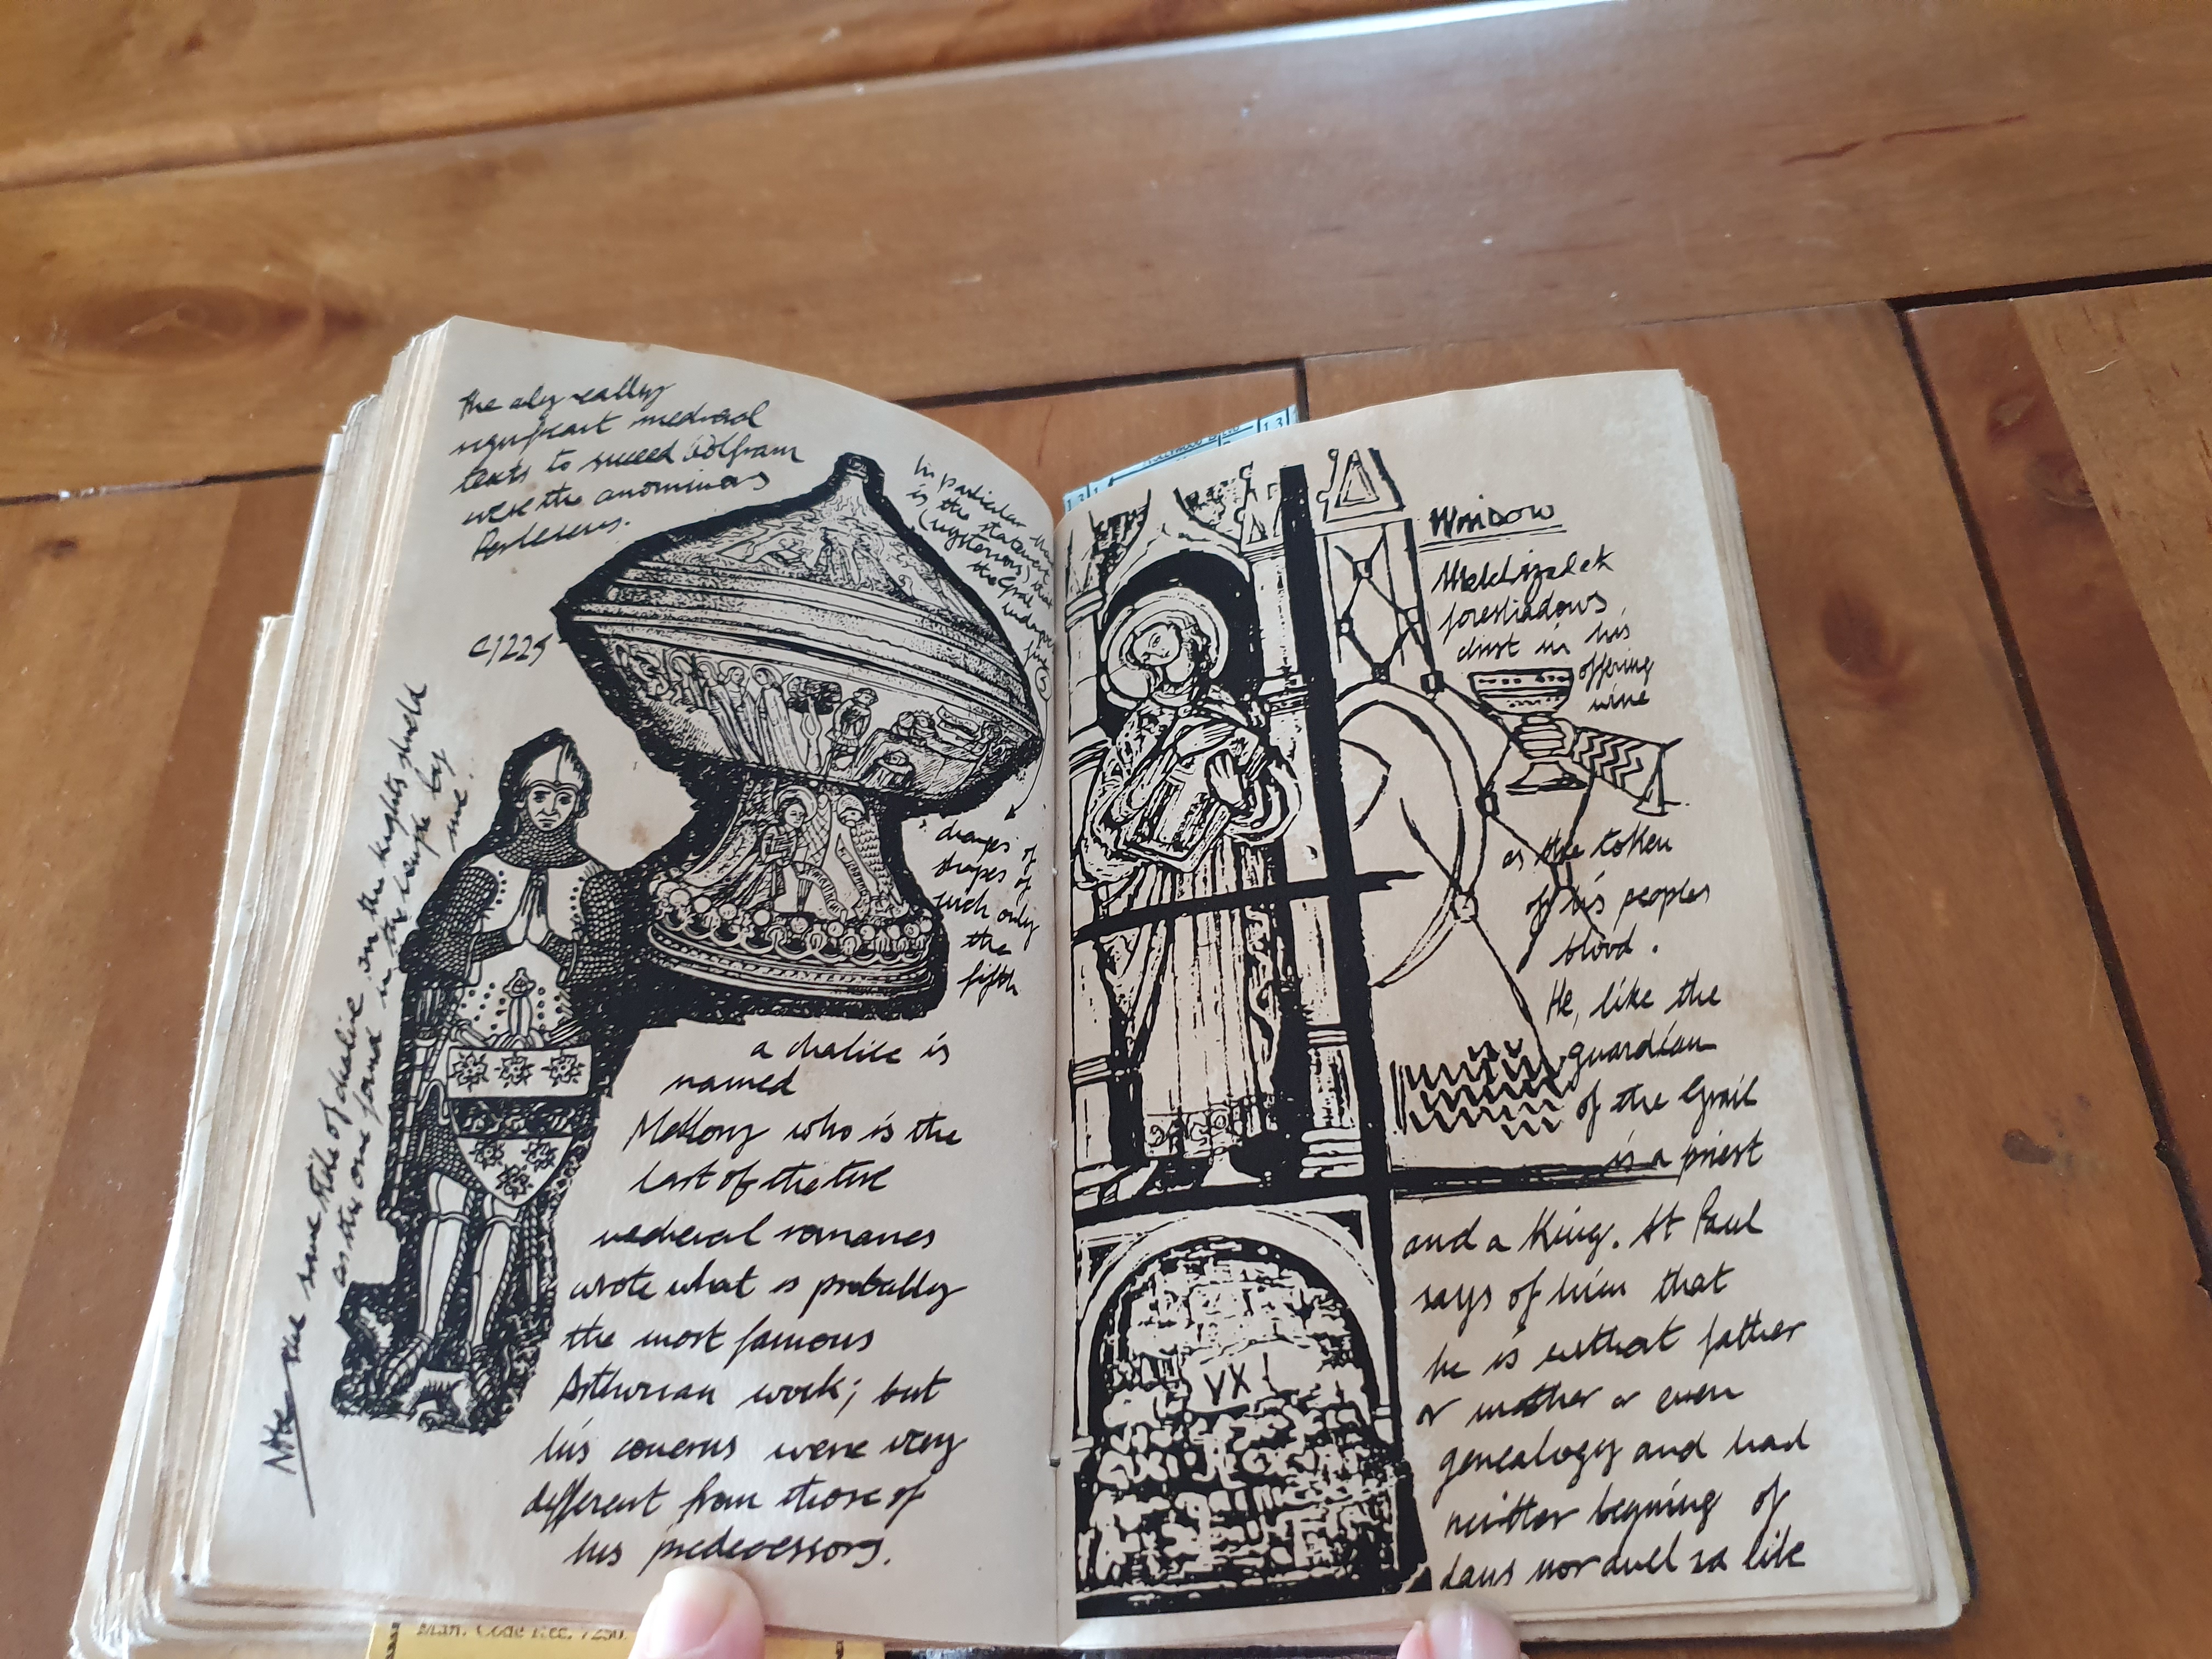 the only really
significant medieval
texts to succeed Wolfram
were the anominous
Perlesvus.
In particular
is the statement that
(mysterious) that
the Gral
five
5
C1225
changes of
shapes of
which only
the
fifth
Note the same stile of chalice on the knights shield
as the one found in the temple by
me.
a chalice is
named
Mallory who is the
last of the true
medieval romances
wrote what is probally
the most famous
Arthurian work; but
his concerns were very
different from those of
his predecessors.
Man. Code Rec. 7250
Window
Melchizadek
foreshadows
christ in his
offering
wine
as the token
of his peoples
blood.
He, like the
guardian
of the Grail
is a priest
and a King. St Paul
says of him that
he is without father
or mother or even
genealogy and had
neither begining of
days nor like
VXI